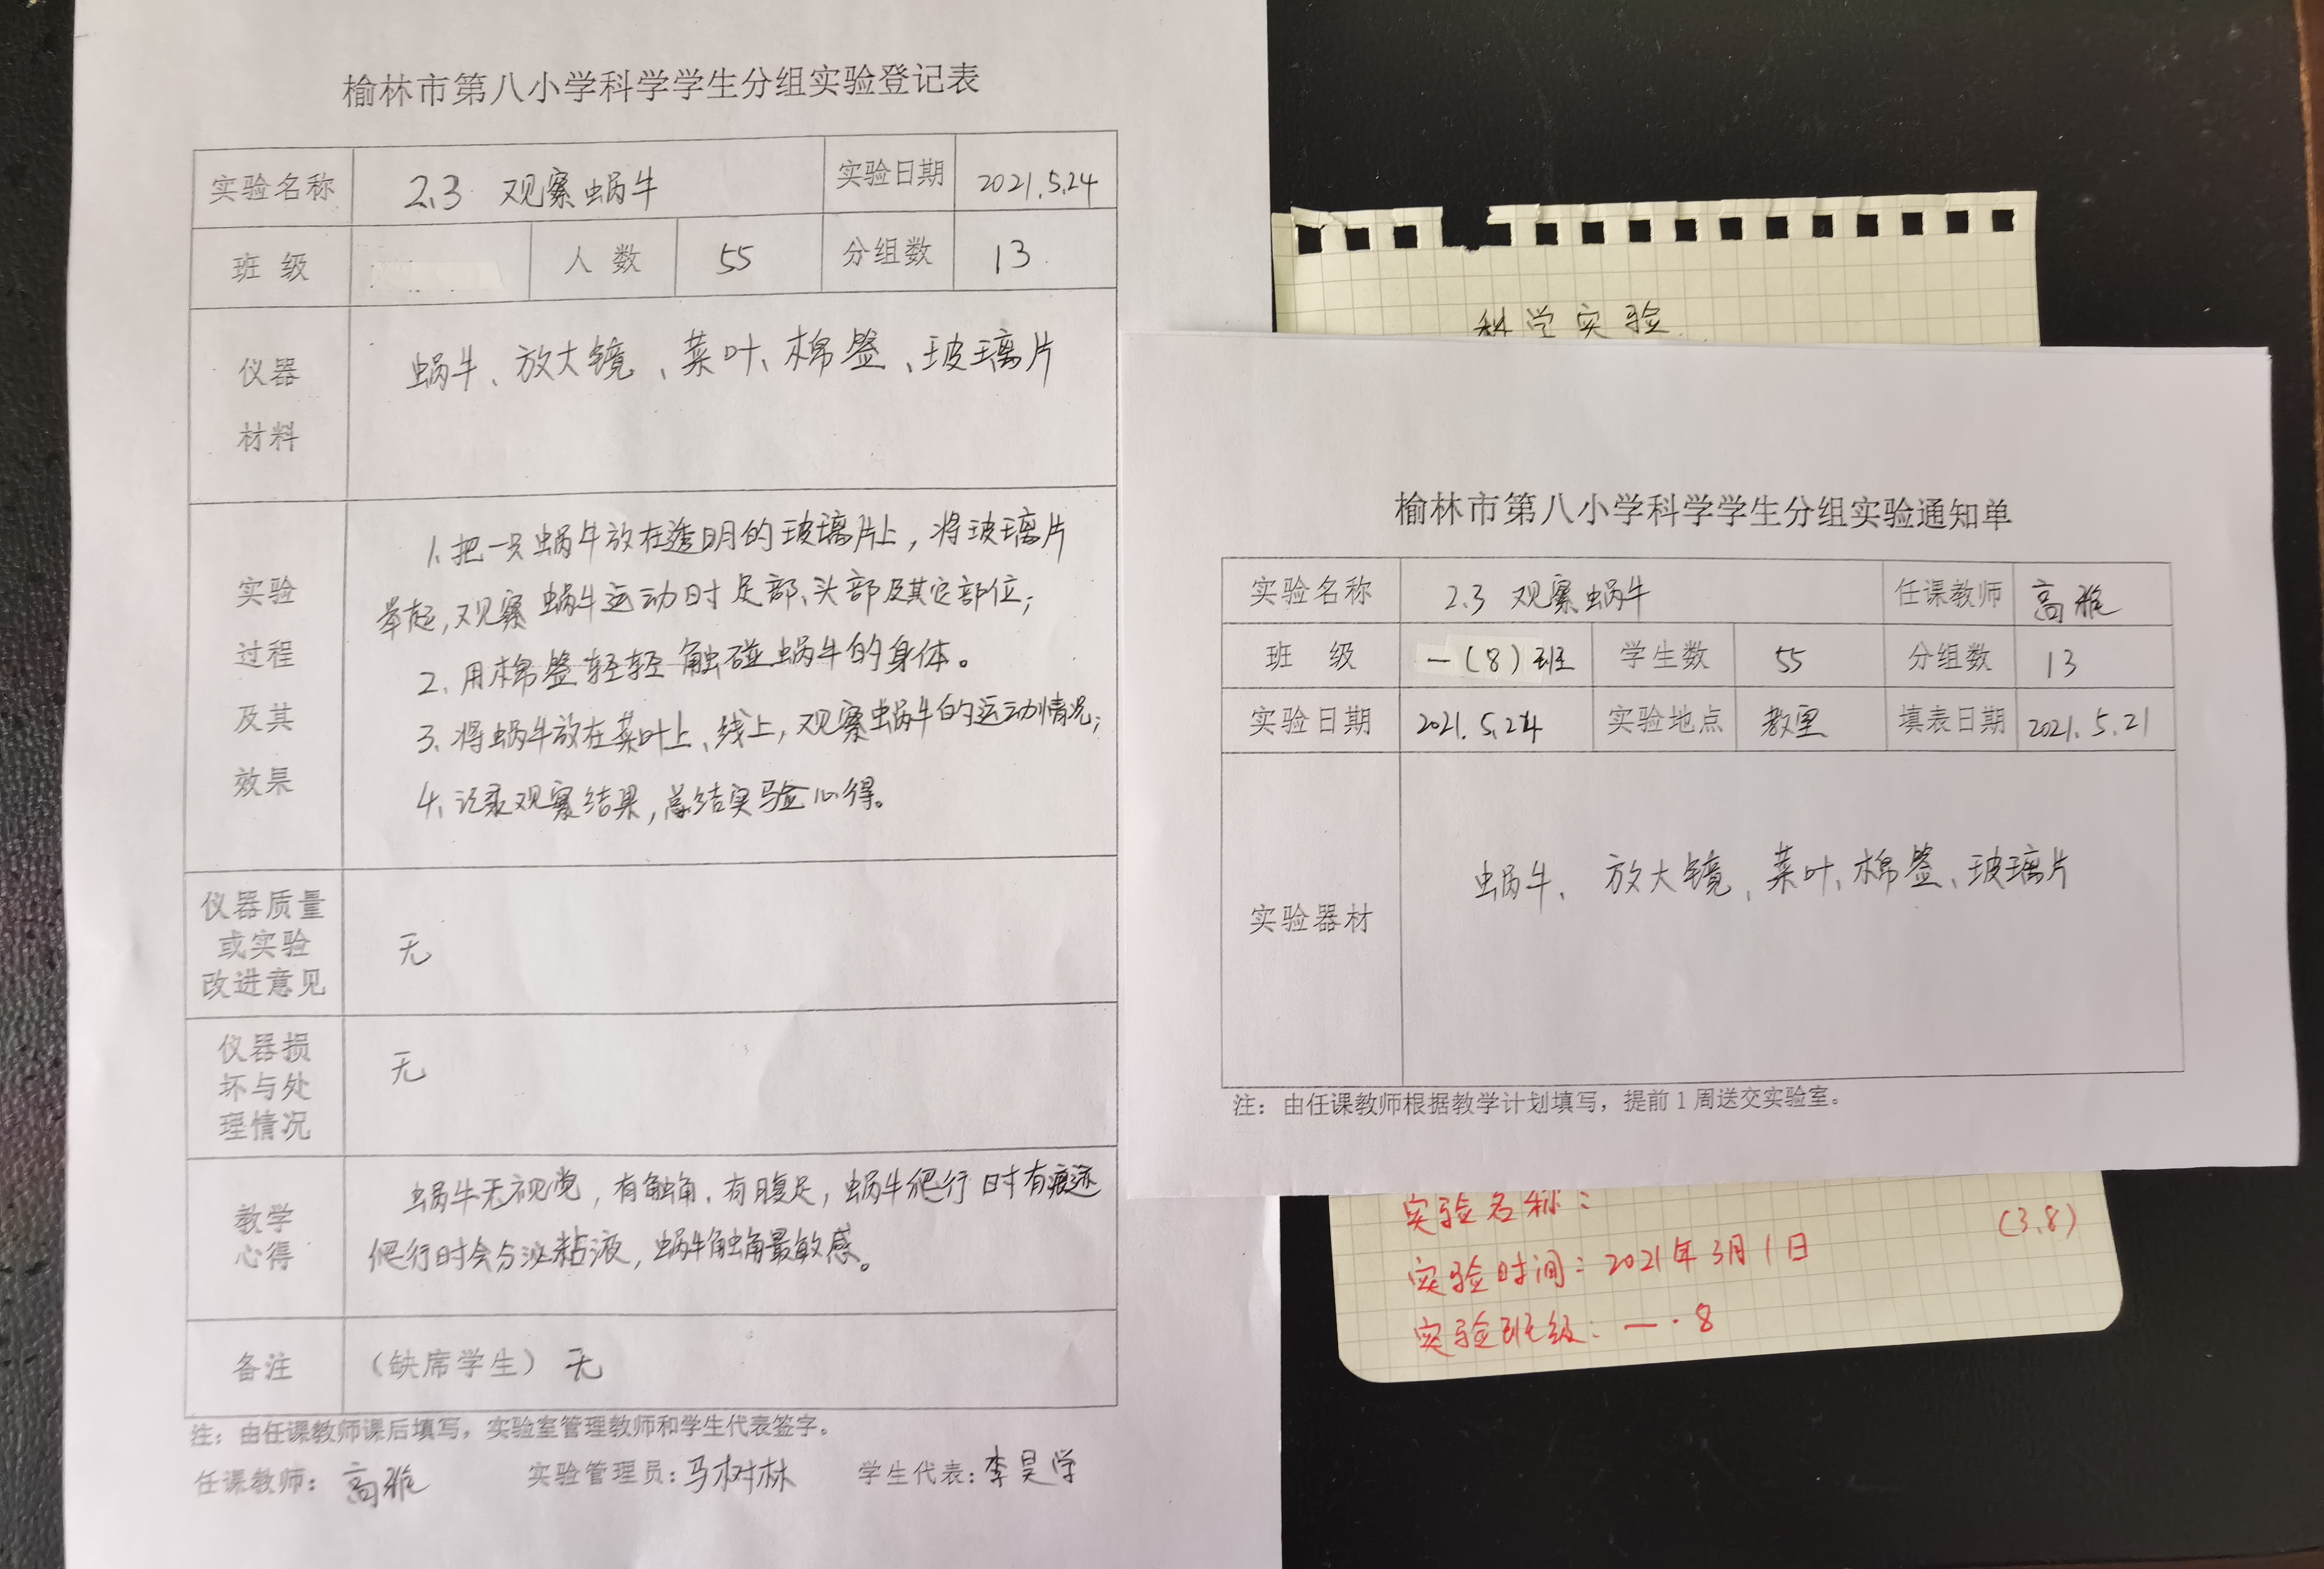 榆林市第八小学科学学生分组实验登记表
实验名称 2.3 观察蜗牛 实验日期 2021.5.24
班 级 人 数 55 分组数 13
仪器 材料 蜗牛、放大镜、菜叶、棉签、玻璃片
实验 过程 及其 效果
1、把一只蜗牛放在透明的玻璃片上，将玻璃片
举起，观察蜗牛运动时足部、头部及其它部位；
2、用棉签轻轻触碰蜗牛的身体。
3、将蜗牛放在菜叶上、线上，观察蜗牛的运动情况；
4、记录观察结果，总结实验心得。
仪器质量
或实验 无
改进意见
仪器损
坏与处 无
理情况
教学 心得
蜗牛无视觉，有触角、有腹足，蜗牛爬行时有痕迹
爬行时会分泌粘液，蜗牛触角最敏感。
备注 （缺席学生） 无
注：由任课教师课后填写，实验室管理教师和学生代表签字。
任课教师：高雅 实验管理员：马树林 学生代表：李昊学
科学实验
榆林市第八小学科学学生分组实验通知单
实验名称 2.3 观察蜗牛 任课教师 高雅
班 级 一（8）班 学生数 55 分组数 13
实验日期 2021.5.24 实验地点 教室 填表日期 2021.5.21
实验器材 蜗牛、放大镜、菜叶、棉签、玻璃片
注：由任课教师根据教学计划填写，提前1周送交实验室。
实验名称：
(3.8)
实验时间：2021年3月1日
实验班级：一·8